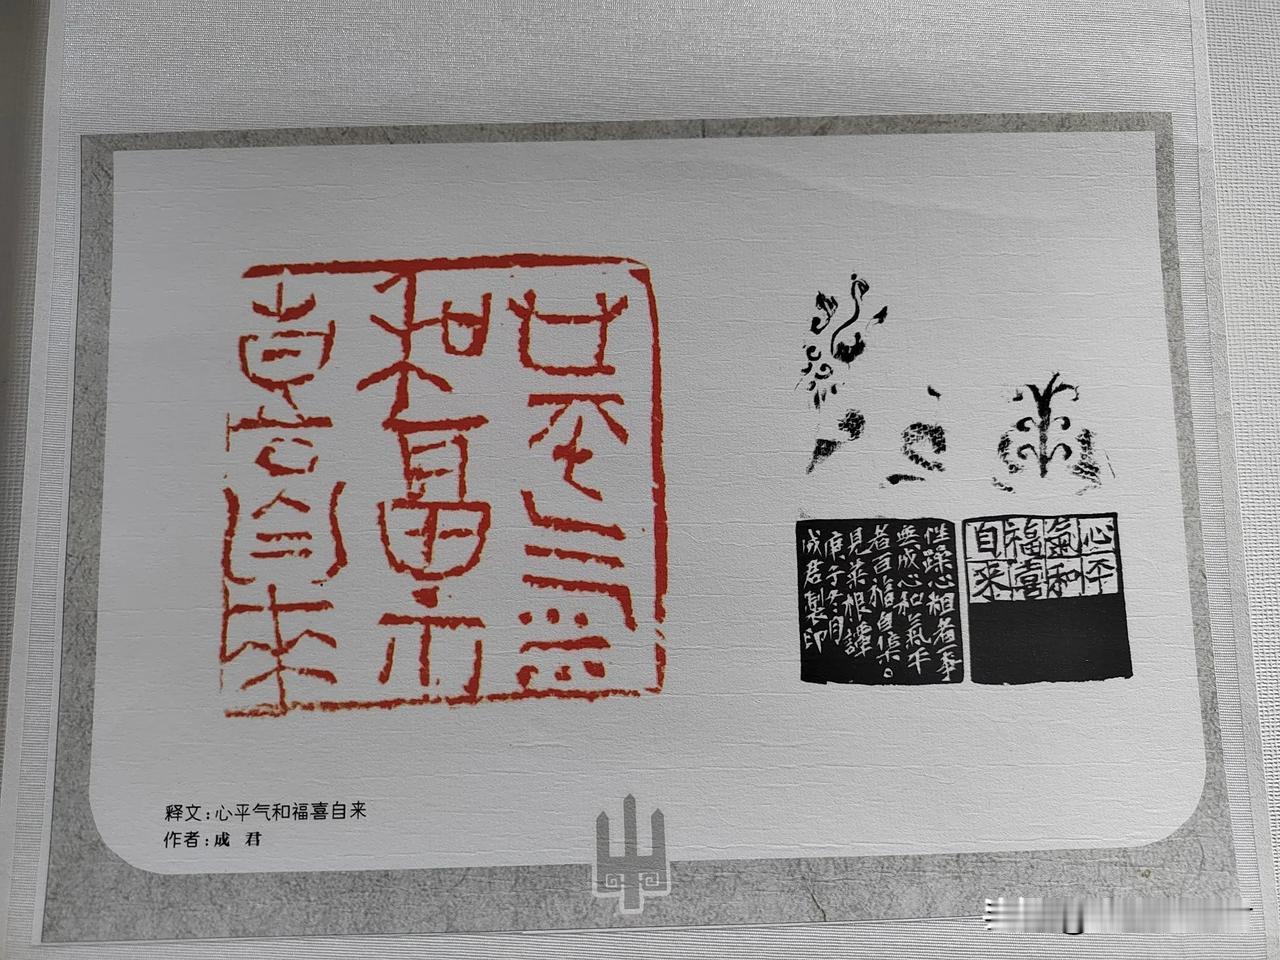 心平气
和福
喜自来
性躁心粗者一事
無成心和氣平
者百福自集。
見菜根譚
庚子冬月
成君製印
心平
氣和
福喜
自來
释文:心平气和福喜自来
作者:成 君